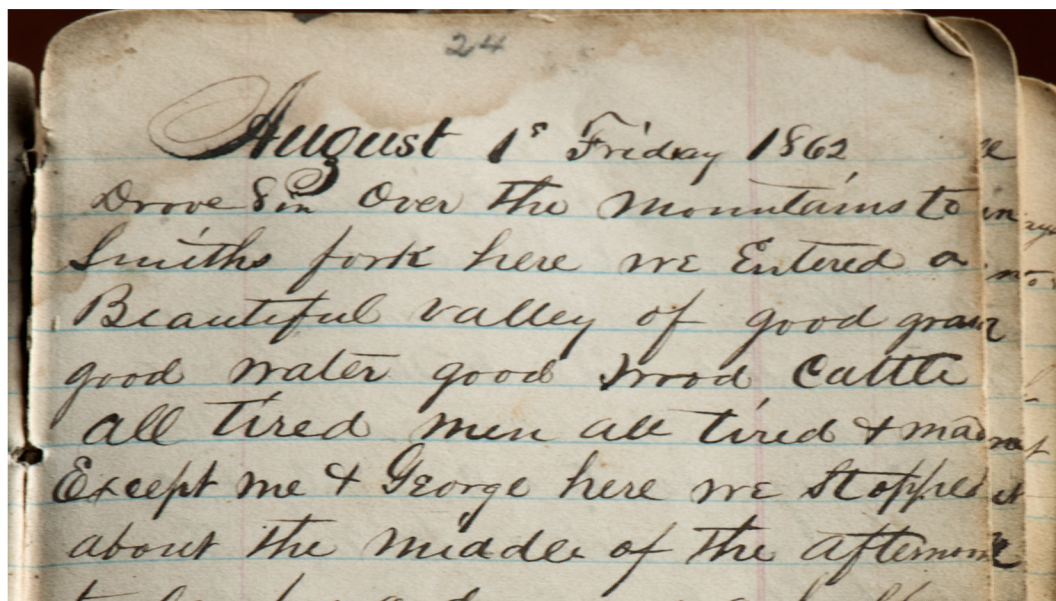 24
August 1s Friday 1862
Drove 8 in Over the Mountains to
Smiths fork here we Entered a
Beautiful valley of good grass
good water good wood Cattle
all tired men all tired & mad
Except me & George here we Stopped
about the middle of the afternoon